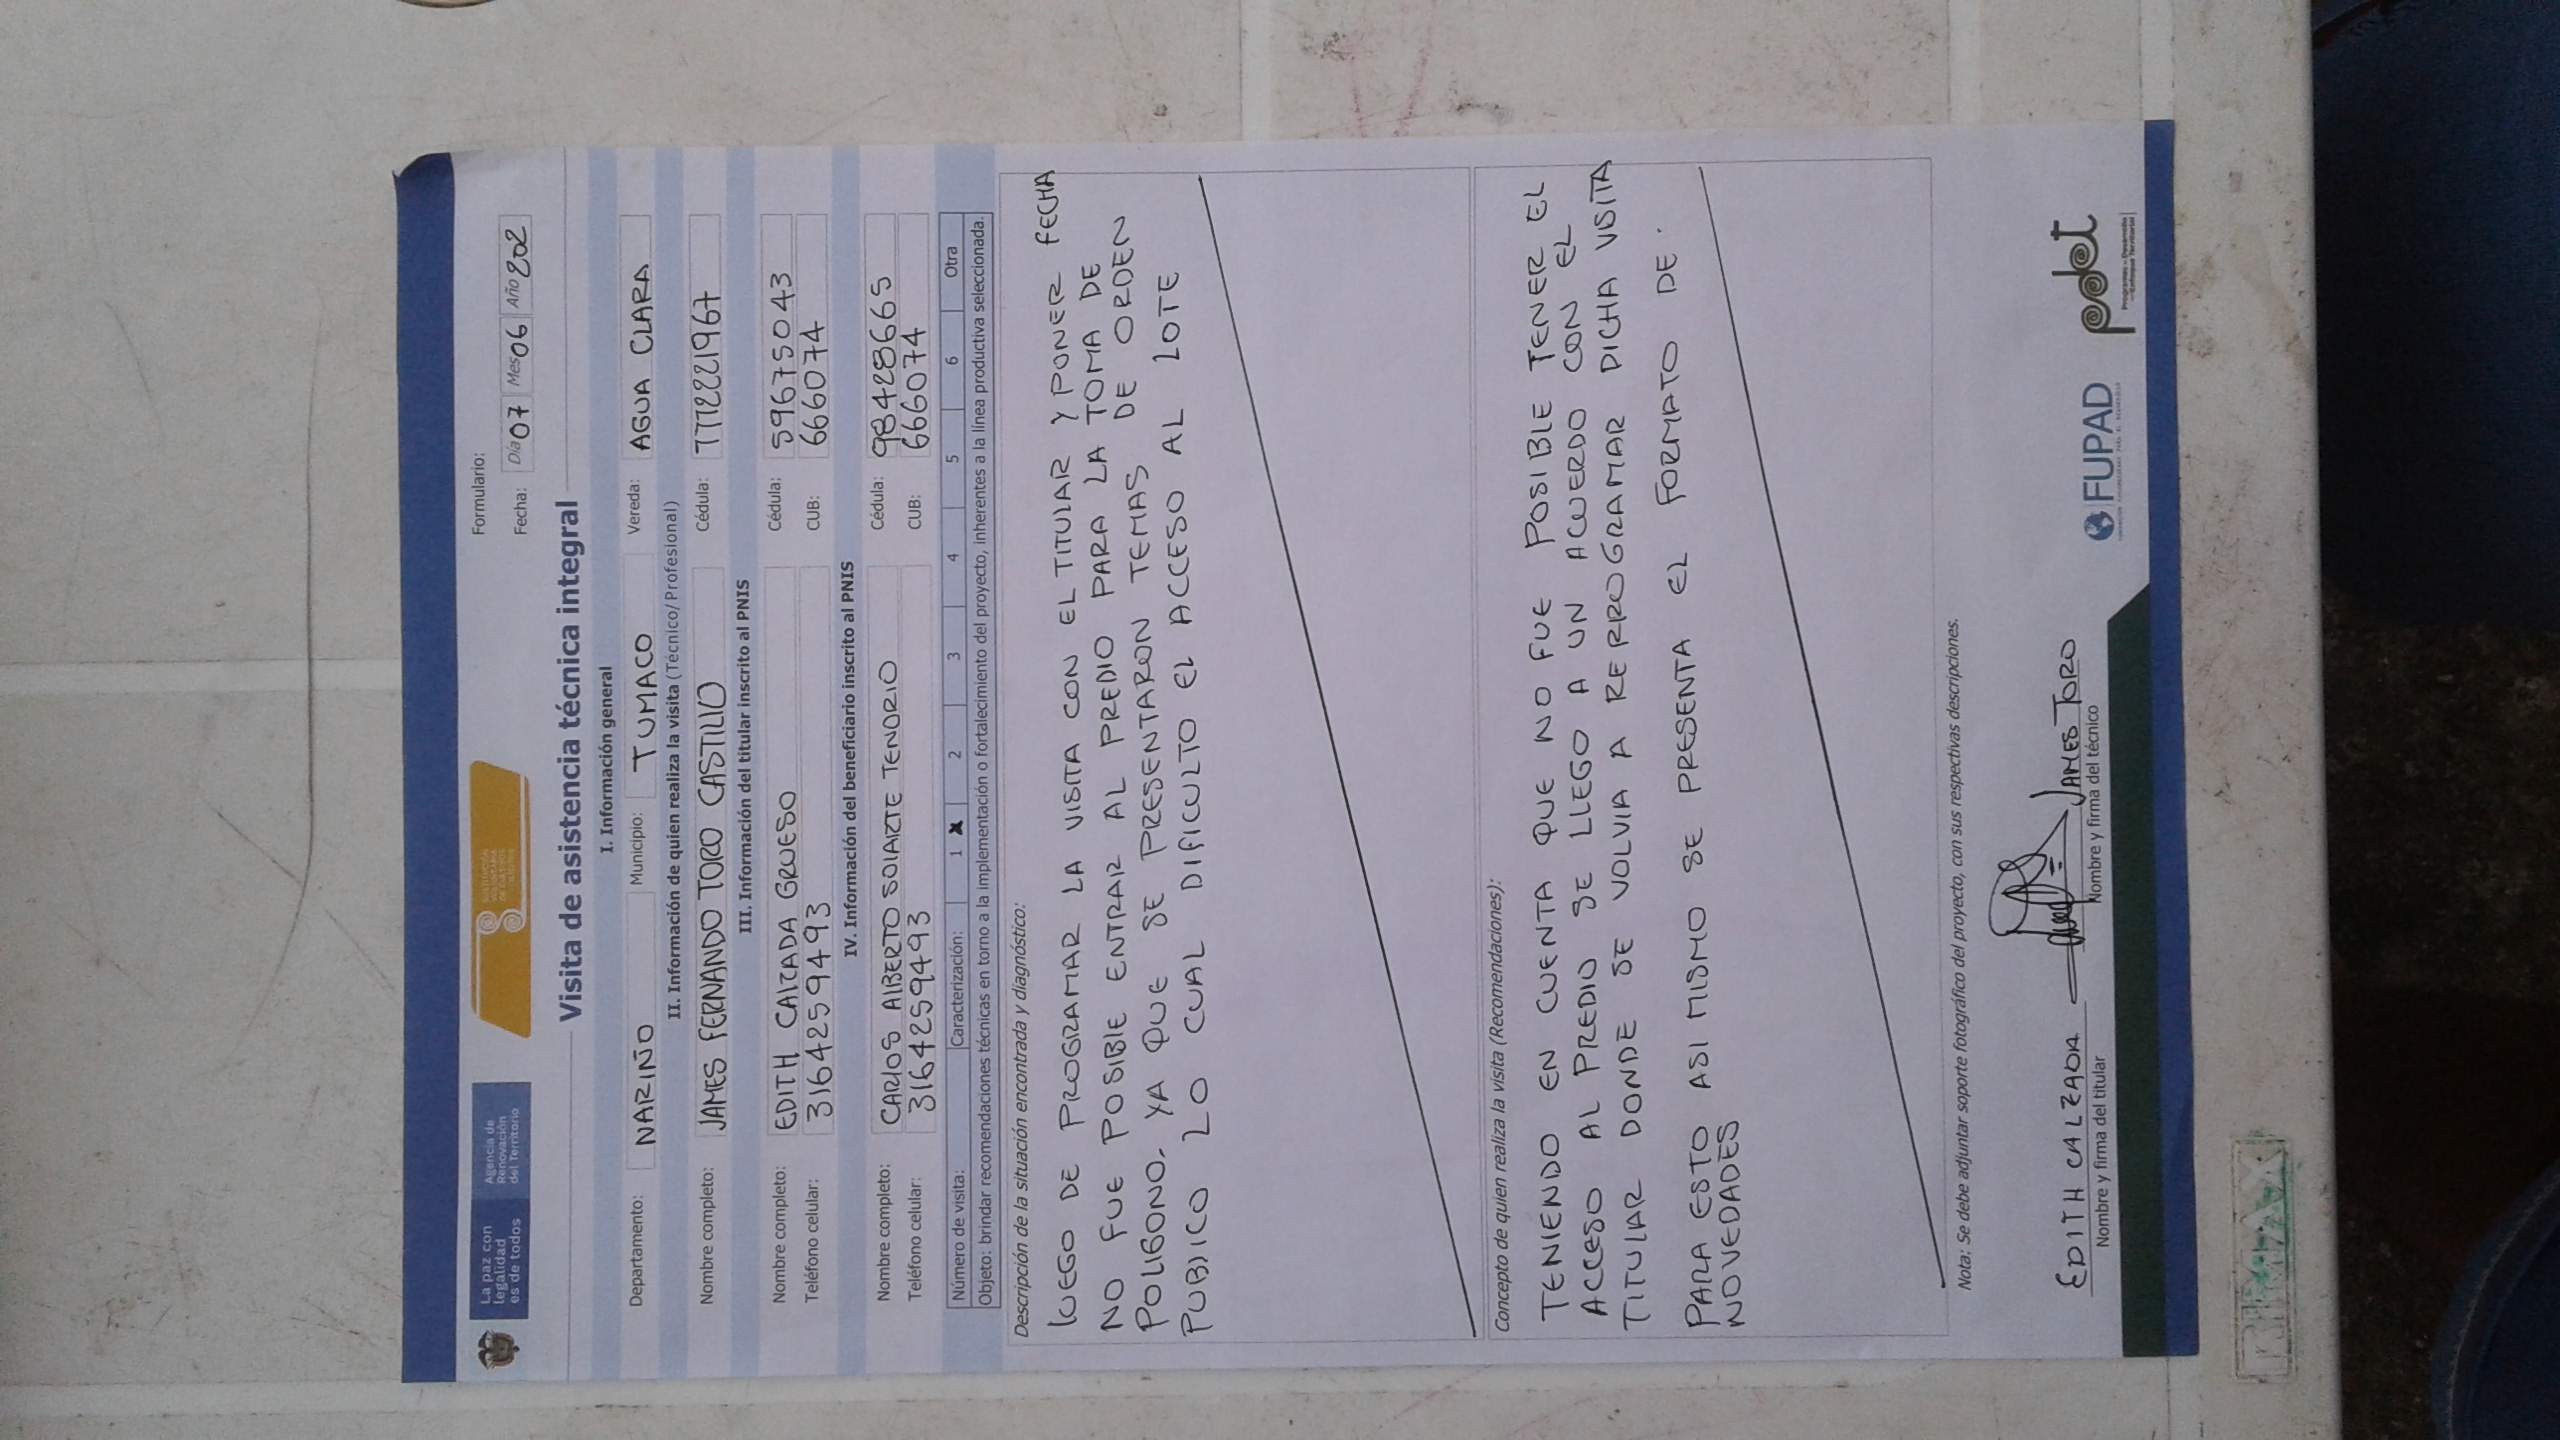 La paz con
legalidad
es de todos
Agencia de
Renovación
del Territorio
SUSTITUCIÓN
VOLUNTARIA
DE CULTIVOS
ILÍCITOS
Formulario:
Fecha: Día 07 Mes 06 Año 202
Visita de asistencia técnica integral
I. Información general
Departamento: NARIÑO Municipio: TUMACO Vereda: AGUA CLARA
II. Información de quien realiza la visita (Técnico/Profesional)
Nombre completo: JAMES FERNANDO TORO CASTILLO Cédula:
III. Información del titular inscrito al PNIS
Nombre completo: EDITH CALZADA GRUESO Cédula: 59675043
Teléfono celular: 3164259493 CUB: 666074
IV. Información del beneficiario inscrito al PNIS
Nombre completo: CARLOS ALBERTO SOLARTE TENORIO Cédula: 98428665
Teléfono celular: 3164259493 CUB: 666074
Número de visita: Caracterización: 1 X 2 3 4 5 6 Otra
Objeto: brindar recomendaciones técnicas en torno a la implementación o fortalecimiento del proyecto, inherentes a la línea productiva seleccionada.
Descripción de la situación encontrada y diagnóstico:
LUEGO DE PROGRAMAR LA VISITA CON EL TITULAR Y PONER FECHA
NO FUE POSIBLE ENTRAR AL PREDIO PARA LA TOMA DE
POLIGONO. YA QUE SE PRESENTARON TEMAS DE ORDEN
PUBLICO LO CUAL DIFICULTO EL ACCESO AL LOTE
Concepto de quien realiza la visita (Recomendaciones):
TENIENDO EN CUENTA QUE NO FUE POSIBLE TENER EL
ACCESO AL PREDIO SE LLEGO A UN ACUERDO CON EL
TITULAR DONDE SE VOLVIA A REPROGRAMAR DICHA VISITA
PARA ESTO ASI MISMO SE PRESENTA EL FORMATO DE.
NOVEDADES
Nota: Se debe adjuntar soporte fotográfico del proyecto, con sus respectivas descripciones.
EDITH CALZADA JAMES TORO
Nombre y firma del titular Nombre y firma del técnico
FUPAD
pdet
Programas de Desarrollo
con Enfoque Territorial
RIMAX